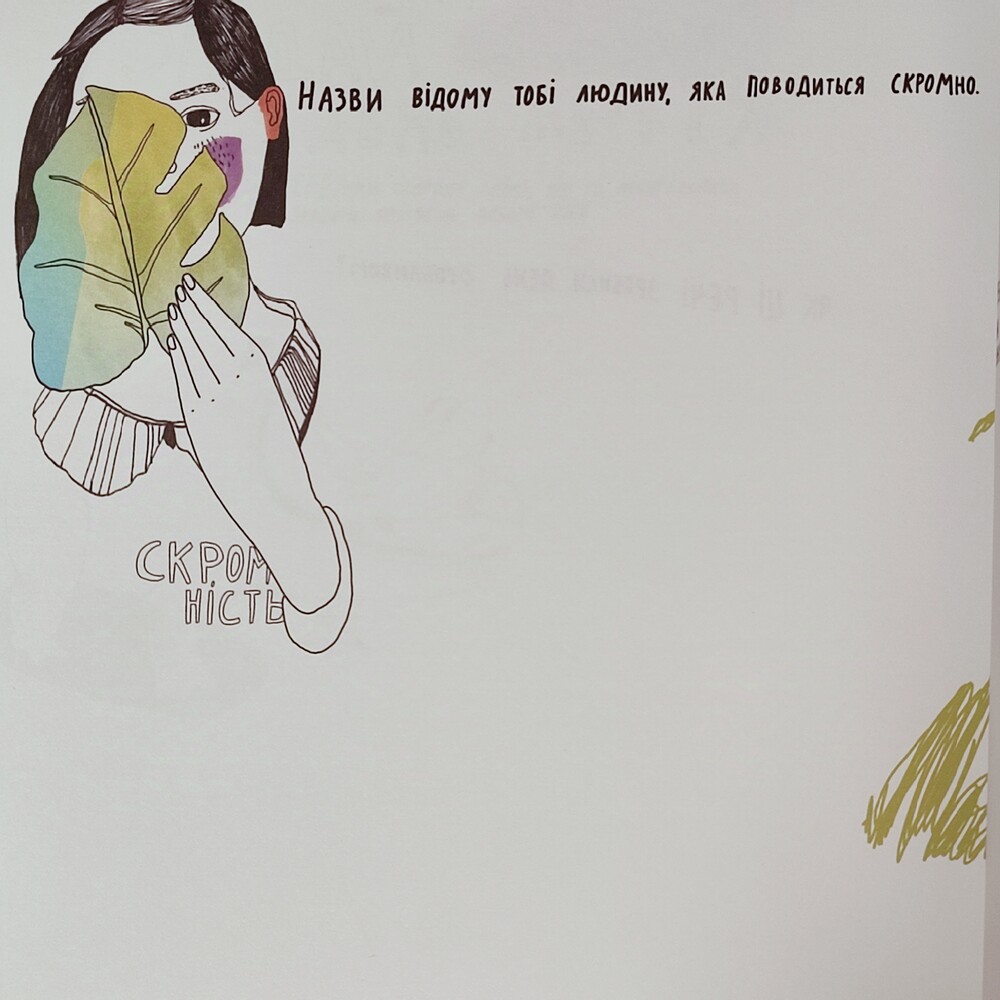 Назви відому тобі людину, яка поводиться скромно.
СКРОМ
НІСТЬ